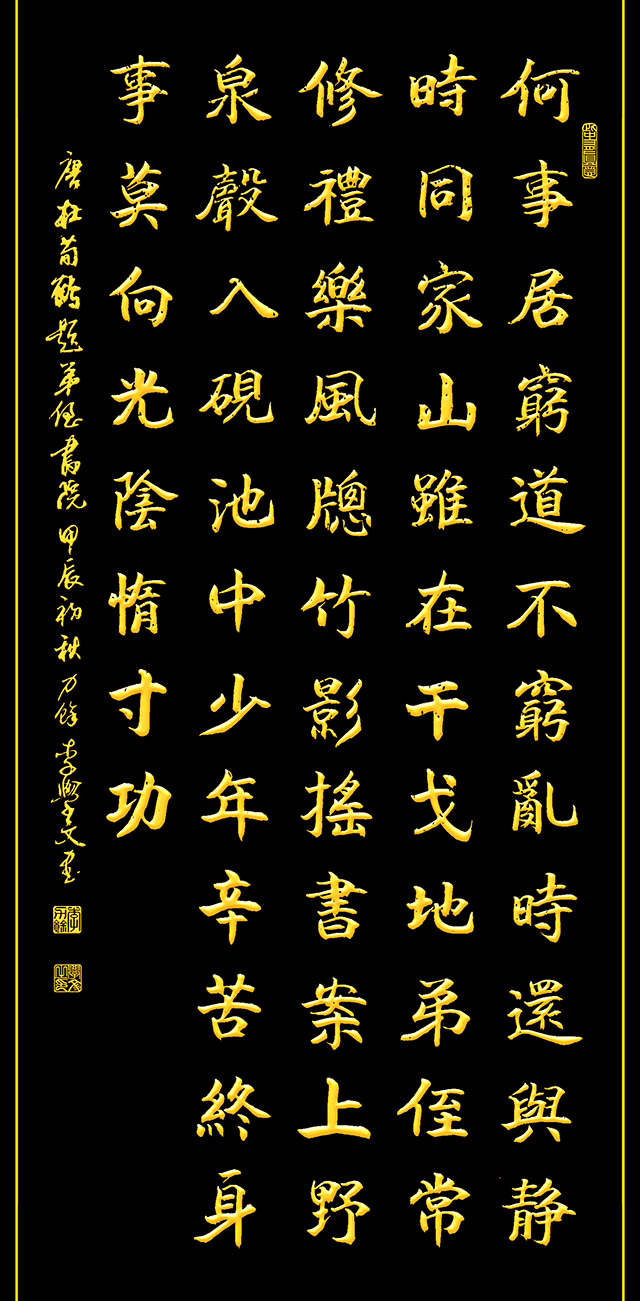 何事居窮道不窮亂時還與静
時同家山雖在干戈地弟侄常
修禮樂風牕竹影搖書案上野
泉聲入硯池中少年辛苦終身
事莫向光陰惰寸功
唐杜荀鶴題弟侄書院甲辰初秋餘李學文書